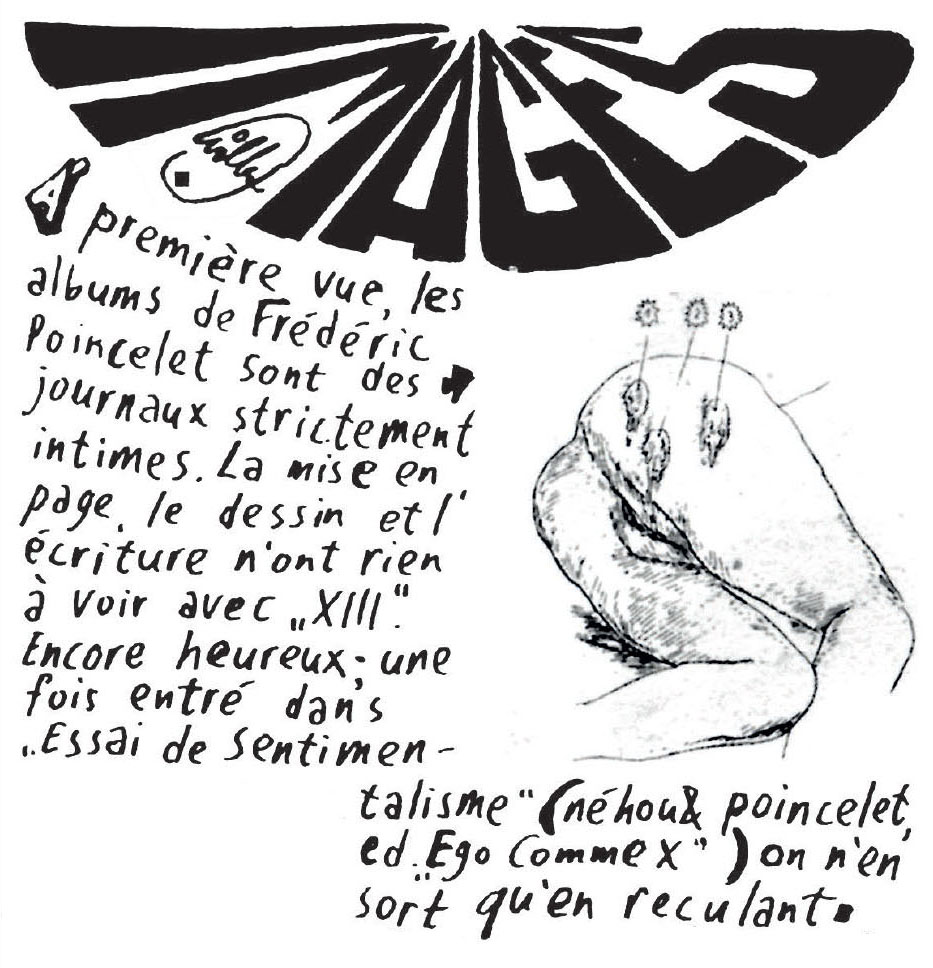 IMAGES
Willem
A première vue, les
albums de Frédéric
Poincelet sont des
journaux strictement
intimes. La mise en
page, le dessin et l'
écriture n'ont rien
à voir avec „XIII“.
Encore heureux; une
fois entré dans
„Essai de Sentimen-
talisme“ (néhou & poincelet,
ed. „Ego Comme X“) on n'en
sort qu'en reculant